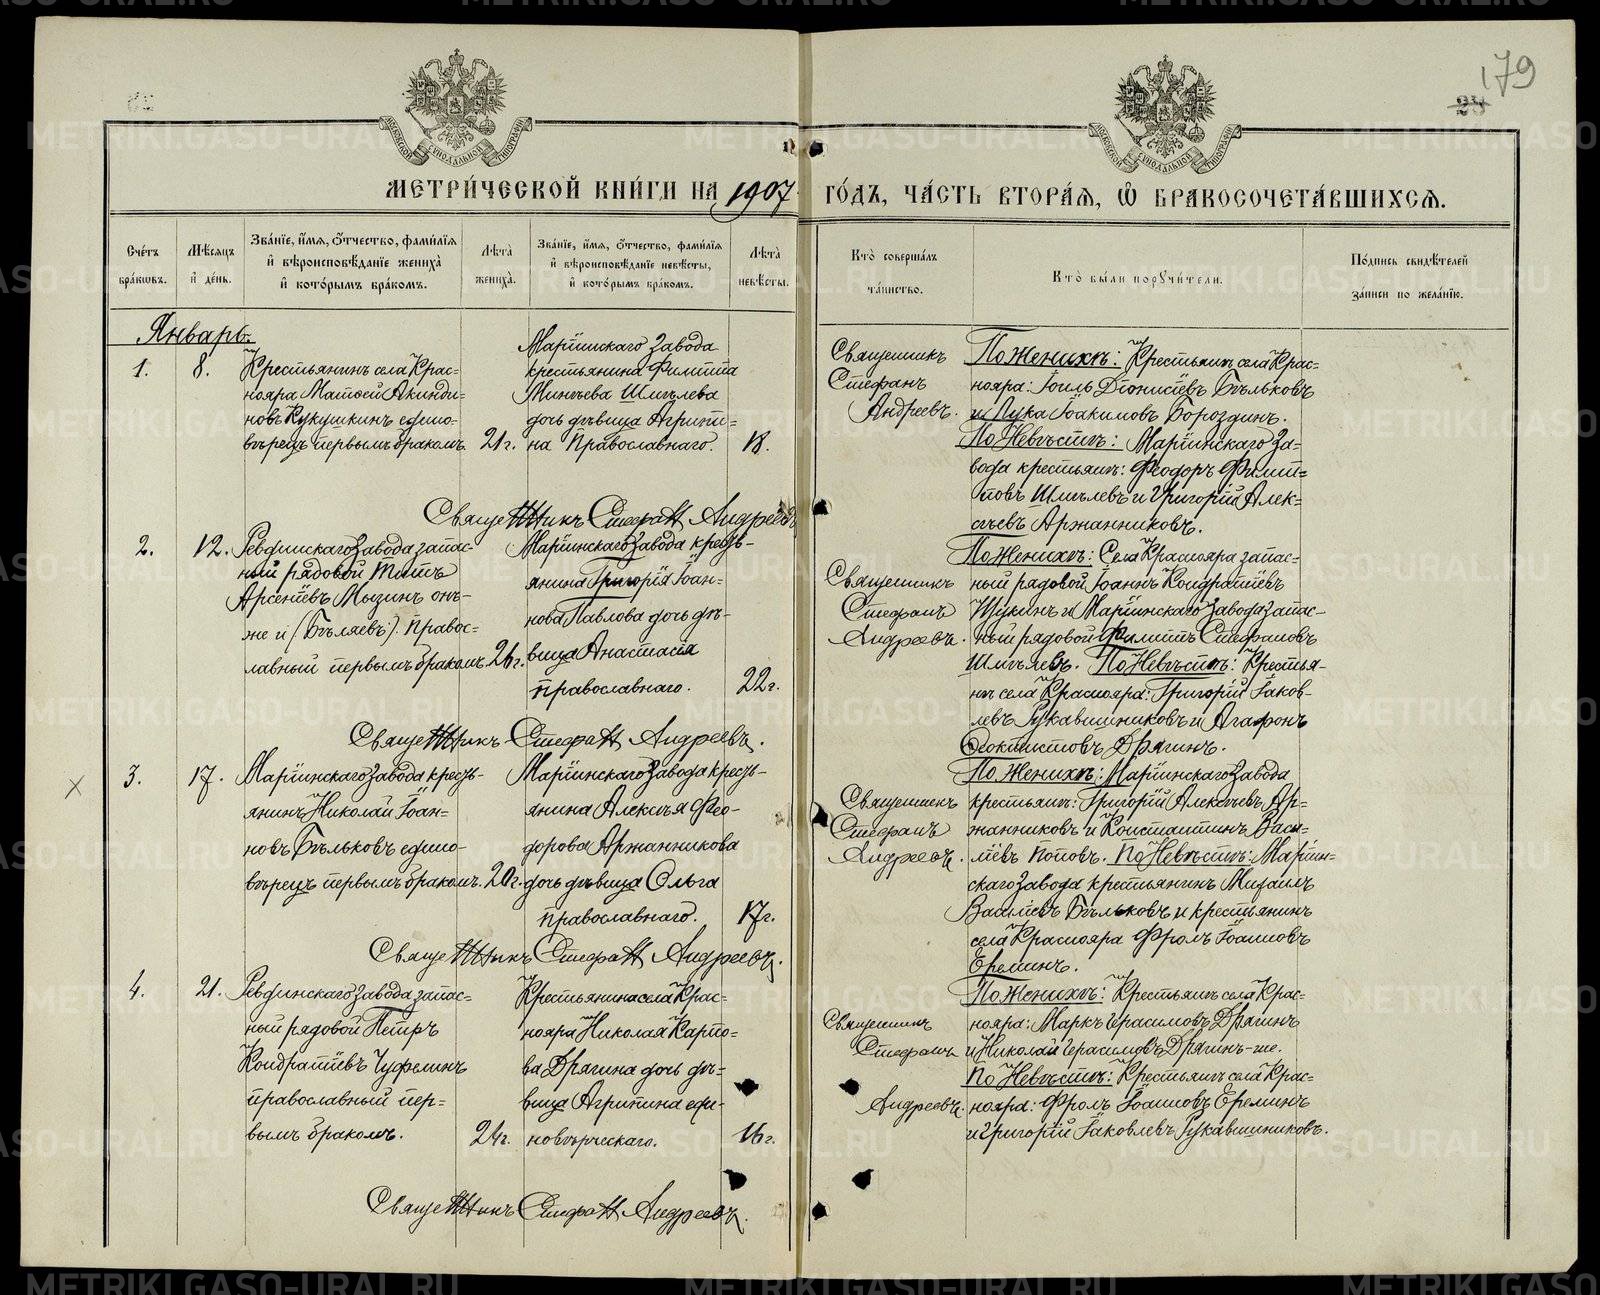 179
МЕТРИ́ЧЕСКОЙ КНИ́ГИ НА 1907 ГО́ДЪ, ЧА́СТЬ ВТОРА́Я, Ѡ БРАКОСОЧЕТА́ВШИХСЯ.
Сче́тъ бра́ковъ.
Мѣ́сяцъ и де́нь.
Зва́нїе, и́мя, о́тчество, фами́лїя и вѣроисповѣ́данїе жениха̀ и кото́рымъ бра́комъ.
Лѣ́та жениха̀.
Зва́нїе, и́мя, о́тчество, фами́лїя и вѣроисповѣ́данїе невѣ́сты, и кото́рымъ бра́комъ.
Лѣ́та невѣ́сты.
Кто̀ соверша́лъ та́инство.
Кто̀ бы́ли поручи́тели.
По́дпись свидѣ́телей за́писи по жела́нїю.
Январь.
1.
8.
Крестьянинъ села Крас-
нояра Матѳей Акинди-
новъ Кукушкинъ едино-
вѣрецъ первымъ бракомъ.
21 г.
Маріинскаго завода
крестьянина Филиппа
Минѣева Шмѣлева
дочь дѣвица Агрипи-
на Православнаго.
18.
Священникъ
Стефанъ
Андреевъ.
По Женихѣ: Крестьяне села Крас-
нояра: Іоиль Діонисіевъ Бѣльковъ
и Лука Іоакимовъ Бороздинъ.
По Невѣстѣ: Маріинскаго за-
вода крестьяне: Ѳеодоръ Филип-
повъ Шмѣлевъ и Григорій Алек-
сѣевъ Аржанниковъ.
Священникъ Стефанъ Андреевъ
2.
12.
Ревдинскаго завода запас-
ный рядовой Титъ
Арсеніевъ Мызинъ онъ-
же и (Бѣляевъ). Правос-
лавный первымъ бракомъ
26 г.
Маріинскаго завода кресть-
янина Григорія Іоан-
нова Павлова дочь дѣ-
вица Анастасія
православнаго.
22 г.
Священникъ
Стефанъ
Андреевъ.
По Женихѣ: Села Краснояра запас-
ный рядовой Іоаннъ Кондратіевъ
Щукинъ и Маріинскаго завода запас-
ный рядовой Филиппъ Стефановъ
Шмѣлевъ. По Невѣстѣ: Крестья-
не села Краснояра: Григорій Іаков-
левъ Рукавишниковъ и Агафонъ
Ѳеоктистовъ Дрягинъ.
Священникъ Стефанъ Андреевъ.
3.
17.
Маріинскаго завода кресть-
янинъ Николай Іоан-
новъ Бѣльковъ едино-
вѣрецъ первымъ бракомъ.
20 г.
Маріинскаго завода кресть-
янина Алексѣя Ѳео-
дорова Аржанникова
дочь дѣвица Ольга
православнаго.
17 г.
Священникъ
Стефанъ
Андреевъ.
По Женихѣ: Маріинскаго завода
крестьяне: Григорій Алексѣевъ Ар-
жанниковъ и Константинъ Васи-
ліевъ Поповъ. По Невѣстѣ: Маріин-
скаго завода крестьянинъ Михаилъ
Василіевъ Бѣльковъ и крестьянинъ
села Краснояра Фролъ Іоанновъ
Ереминъ.
Священникъ Стефанъ Андреевъ.
4.
21.
Ревдинскаго завода запас-
ный рядовой Петръ
Кондратіевъ Чуфелинъ
православный пер-
вымъ бракомъ.
24 г.
Крестьянина села Крас-
нояра Николая Карпо-
ва Дрягина дочь дѣ-
вица Агрипина еди-
новѣрческаго.
16 г.
Священникъ
Стефанъ
Андреевъ.
По Женихѣ: Крестьяне села Крас-
нояра: Маркъ Герасимовъ Дрягинъ
и Николай Герасимовъ Дрягинъ-же.
По Невѣстѣ: Крестьяне села Крас-
нояра: Фролъ Іоанновъ Ереминъ
и Григорій Іаковлевъ Рукавишниковъ.
Священникъ Стефанъ Андреевъ.
METRIKI.GASO-URAL.RU